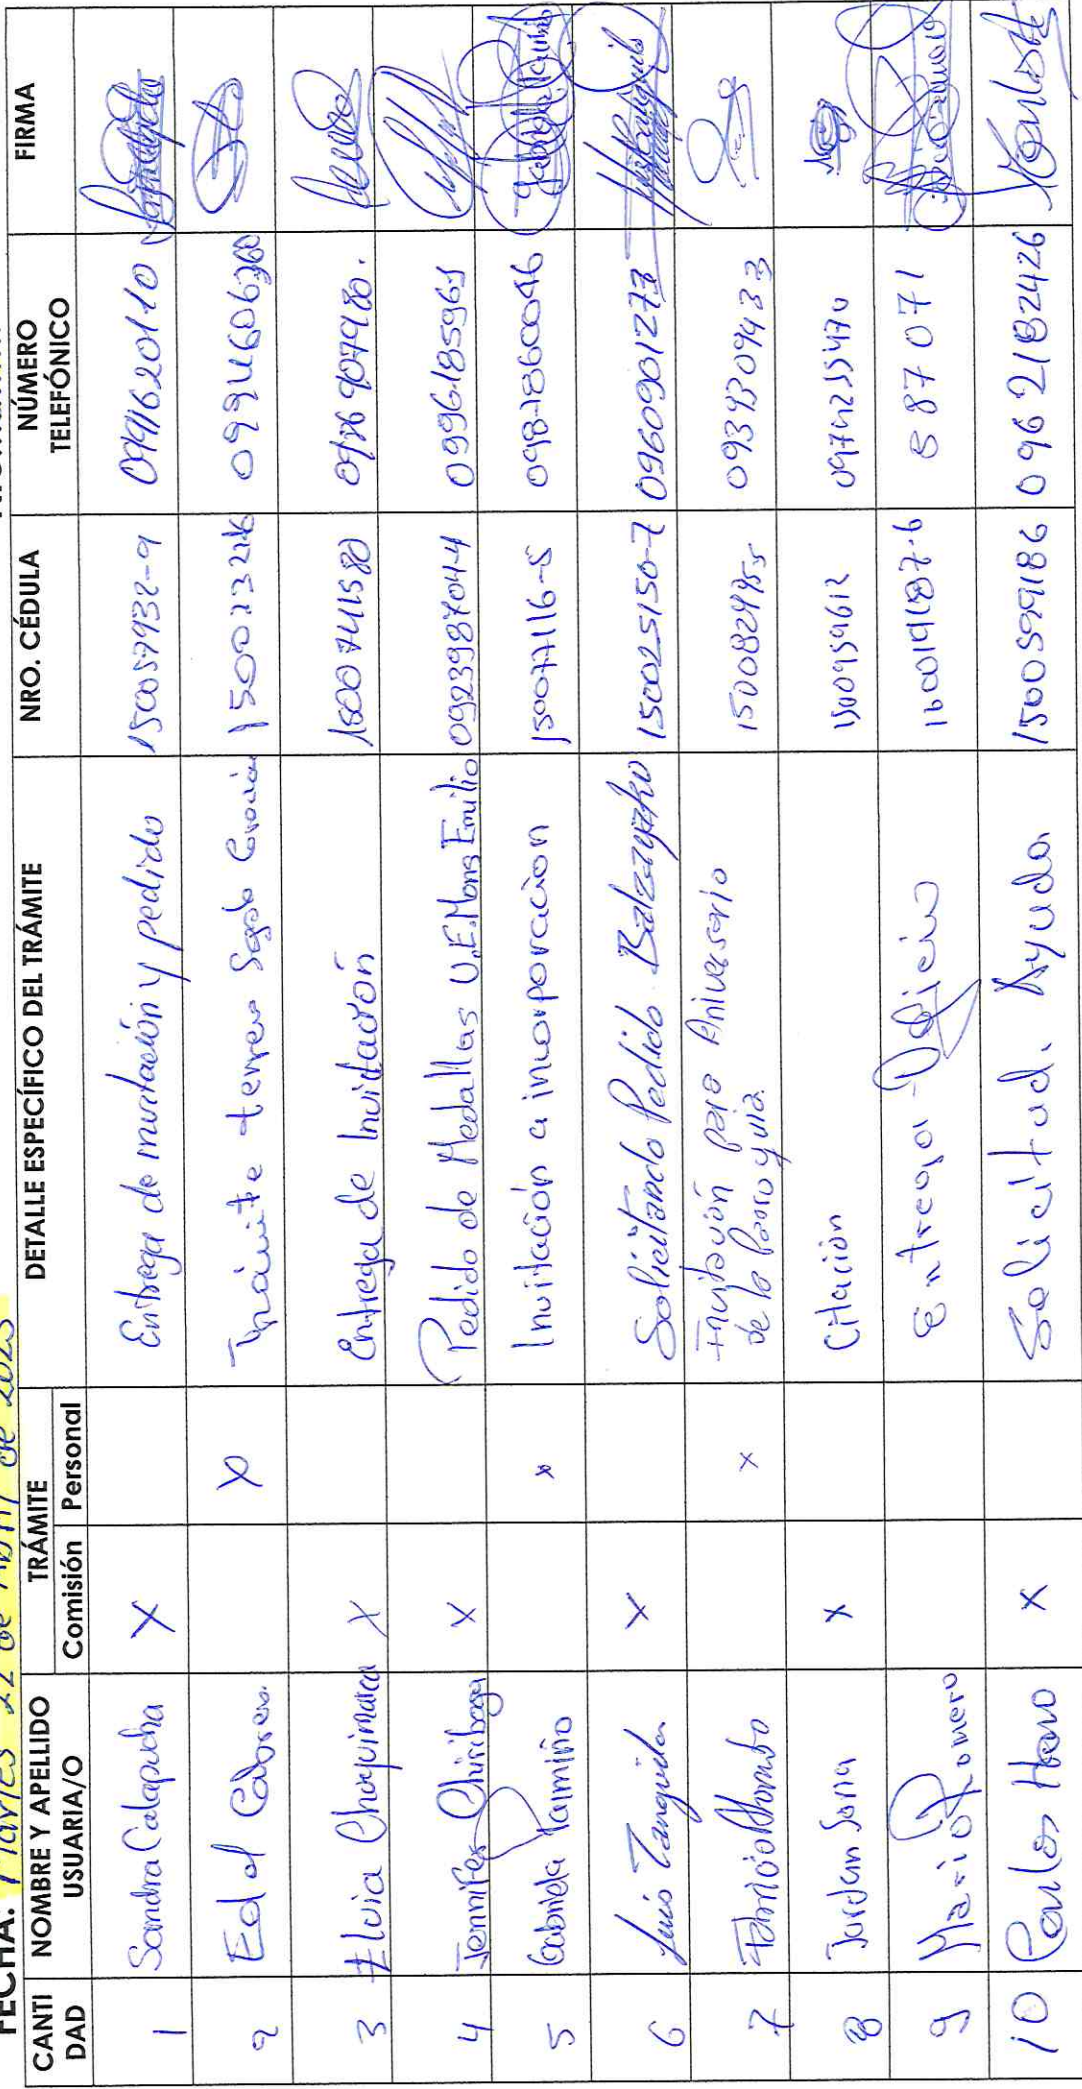 FECHA: Martes 22 de Abril de 2025
CANTI DAD NOMBRE Y APELLIDO USUARIA/O TRÁMITE Comisión Personal DETALLE ESPECÍFICO DEL TRÁMITE NRO. CÉDULA NÚMERO TELEFÓNICO FIRMA
1 Sandra Calapucha X Entrega de invitación y pedido 150057932-9 0991620110
2 Ed el Cabrera X Trámite terreno
3 Elvia Chuquimarca X Entrega de Invitación
4 Jennifer Chiriboga X Pedido de Medallas U.E. Mons Emilio 092398704-4 0996185969
5 Gabriela Pamiño x Invitación a incorporacion 150077116-5 0981860046
6 Luis Tanguila X Solicitando Pedido 150025150-7 0960901277
7 Fabricio X Invitación para Aniversario
de la Parroquia 0939309433
8 Jordan Soria x Citación 1500959612
9 Mario Romero Entrega Oficio 887071
10 Carlos x Solicitud. Ayuda 1500599186 0962182426